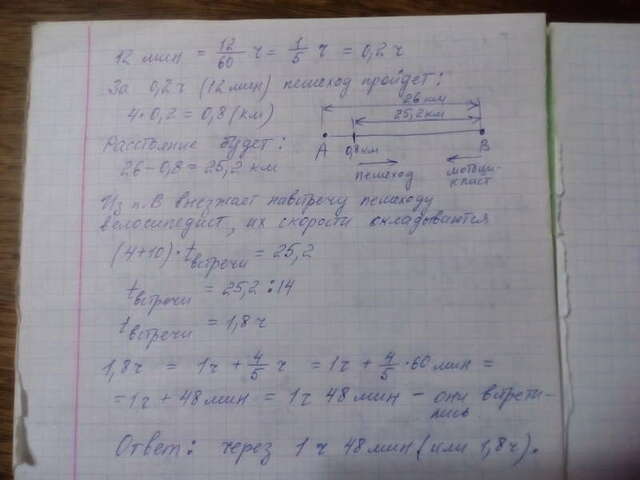 12 мин = 12/60 ч = 1/5 ч = 0,2 ч
За 0,2 ч (12 мин) пешеход пройдет:
4·0,2 = 0,8 (км)
26 км
25,2 км
A 0,8 км B
пешеход
мотоци-
клист
Расстояние будет:
26-0,8 = 25,2 км
Из п.В выезжает навстречу пешеходу
велосипедист, их скорости складываются
(4+10)·tвстречи = 25,2
tвстречи = 25,2:14
tвстречи = 1,8 ч
1,8 ч = 1ч + 4/5 ч = 1ч + 4/5·60 мин =
= 1ч + 48 мин = 1ч 48 мин - они встрети-
лись
Ответ: через 1 ч 48 мин (или 1,8 ч).